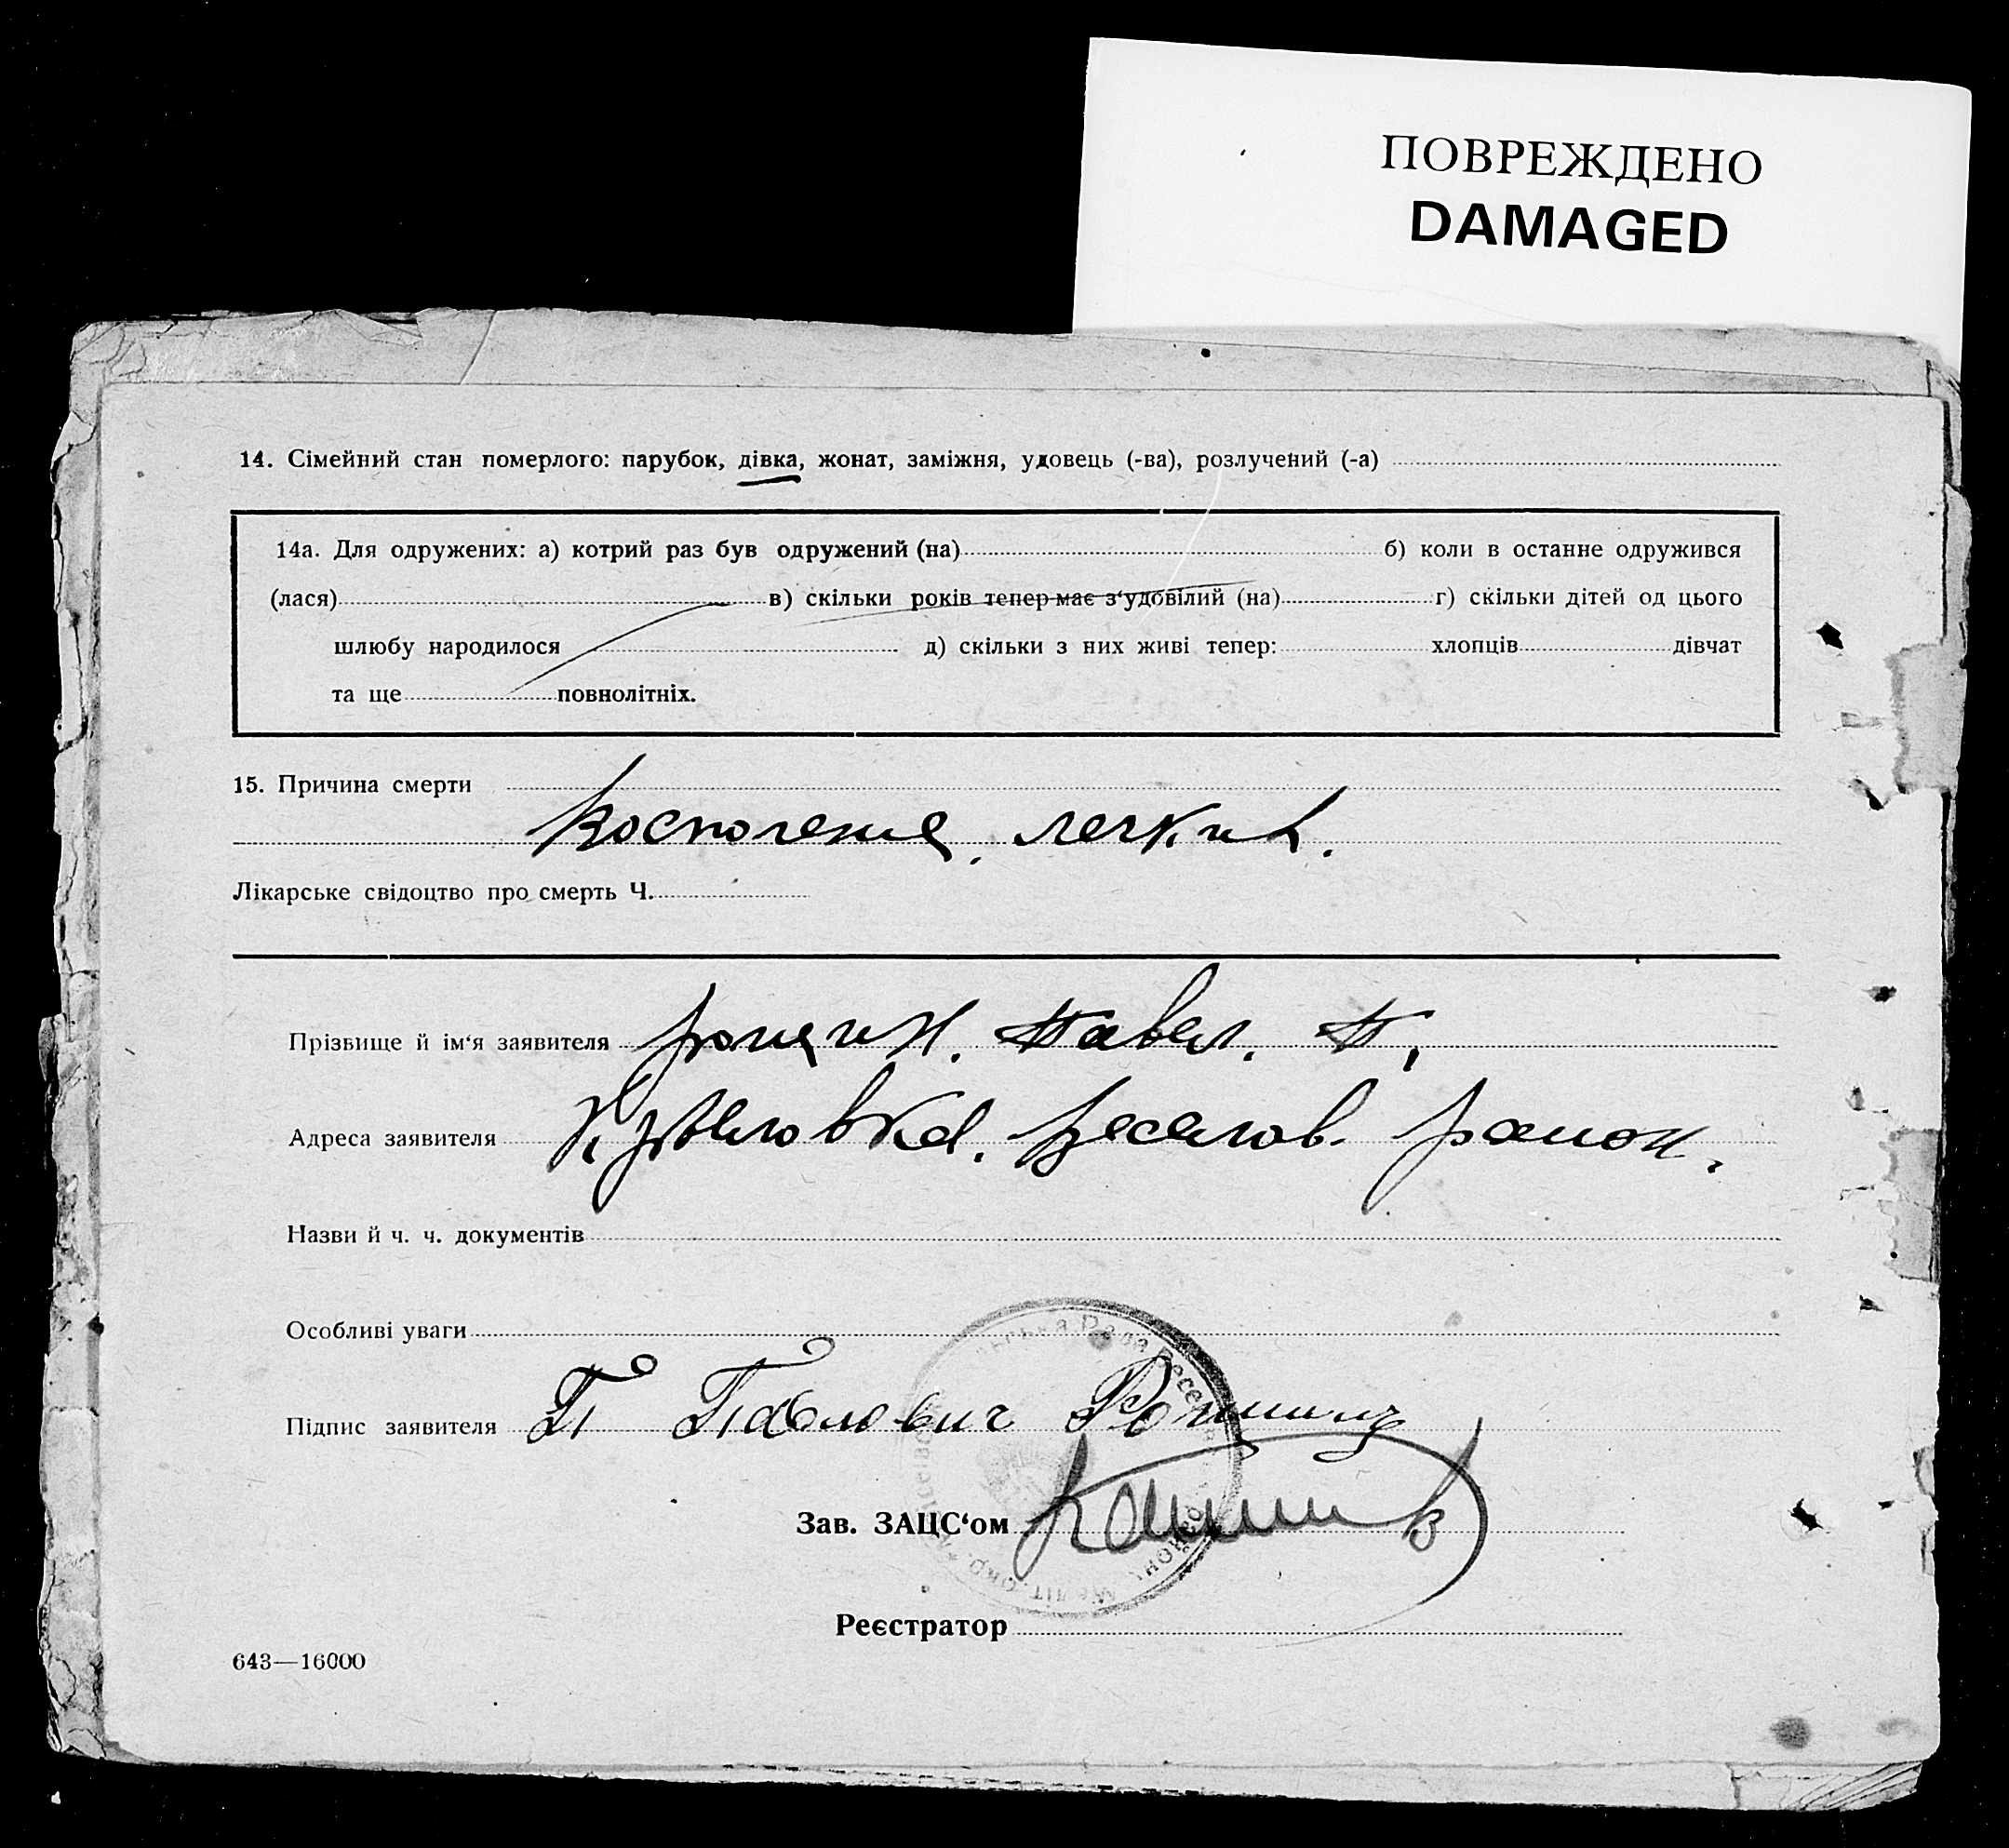 ПОВРЕЖДЕНО
DAMAGED
14. Сімейний стан померлого: парубок, дівка, жонат, заміжня, удовець (-ва), розлучений (-а)
14а. Для одружених: а) котрий раз був одружений (на) б) коли в останне одружився
(лася) в) скільки років тепер має з'удовілий (на) г) скільки дітей од цього
шлюбу народилося д) скільки з них живі тепер: хлопців дівчат
та ще повнолітніх.
15. Причина смерти
Восполения легких.
Лікарське свідоцтво про смерть Ч.
Прізвище й ім'я заявителя Павел. П.
Адреса заявителя Веселов. район.
Назви й ч. ч. документів
Особливі уваги
Підпис заявителя П Павлович
Зав. ЗАЦС'ом
Реєстратор
643—16000